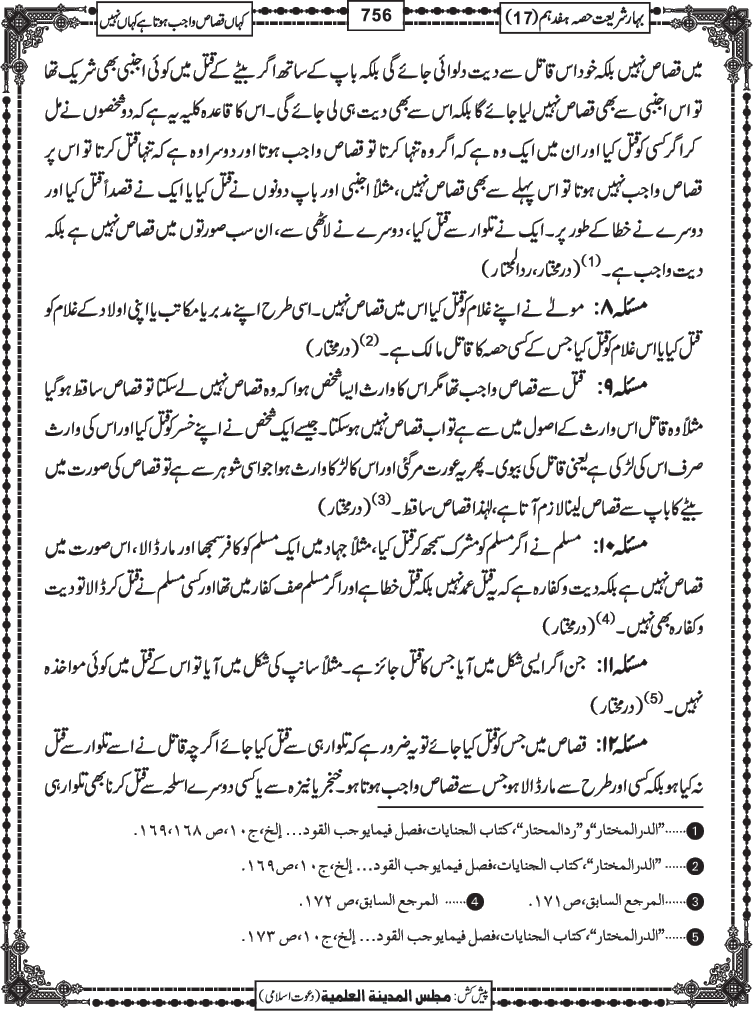 بہار شریعت حصہ ہفدہم (17)
756
کہاں قصاص واجب ہوتا ہے کہاں نہیں
میں قصاص نہیں بلکہ خود اس قاتل سے دیت دلوائی جائے گی بلکہ باپ کے ساتھ اگر بیٹے کے قتل میں کوئی اجنبی بھی شریک تھا
تو اس اجنبی سے بھی قصاص نہیں لیا جائے گا بلکہ اس سے بھی دیت ہی لی جائے گی۔ اس کا قاعدہ کلیہ یہ ہے کہ دو شخصوں نے مل
کر اگر کسی کو قتل کیا اور ان میں ایک وہ ہے کہ اگر وہ تنہا کرتا تو قصاص واجب ہوتا اور دوسرا وہ ہے کہ تنہا قتل کرتا تو اس پر
قصاص واجب نہیں ہوتا تو اس پہلے سے بھی قصاص نہیں، مثلاً اجنبی اور باپ دونوں نے قتل کیا یا ایک نے قصداً قتل کیا اور
دوسرے نے خطا کے طور پر۔ ایک نے تلوار سے قتل کیا، دوسرے نے لاٹھی سے، ان سب صورتوں میں قصاص نہیں ہے بلکہ
دیت واجب ہے۔ (1) (درمختار، ردالمحتار)
مسئلہ ۸: مولےٰ نے اپنے غلام کو قتل کیا اس میں قصاص نہیں۔ اسی طرح اپنے مدبر یا مکاتب یا اپنی اولاد کے غلام کو
قتل کیا یا اس غلام کو قتل کیا جس کے کسی حصہ کا قاتل مالک ہے۔ (2) (درمختار)
مسئلہ ۹: قتل سے قصاص واجب تھا مگر اس کا وارث ایسا شخص ہوا کہ وہ قصاص نہیں لے سکتا تو قصاص ساقط ہوگیا
مثلاً وہ قاتل اس وارث کے اصول میں سے ہے تو اب قصاص نہیں ہوسکتا۔ جیسے ایک شخص نے اپنے خسر کو قتل کیا اور اس کی وارث
صرف اس کی لڑکی ہے یعنی قاتل کی بیوی۔ پھر یہ عورت مرگئی اور اس کا لڑکا وارث ہوا جو اسی شوہر سے ہے تو قصاص کی صورت میں
بیٹے کا باپ سے قصاص لینا لازم آتا ہے، لہٰذا قصاص ساقط۔ (3) (درمختار)
مسئلہ ۱۰: مسلم نے اگر مسلم کو مشرک سمجھ کر قتل کیا، مثلاً جہاد میں ایک مسلم کو کافر سمجھا اور مار ڈالا، اس صورت میں
قصاص نہیں ہے بلکہ دیت و کفارہ ہے کہ یہ قتل عمد نہیں بلکہ قتل خطا ہے اور اگر مسلم صف کفار میں تھا اور کسی مسلم نے قتل کر ڈالا تو دیت
و کفارہ بھی نہیں۔ (4) (درمختار)
مسئلہ ۱۱: جن اگر ایسی شکل میں آیا جس کا قتل جائز ہے۔ مثلاً سانپ کی شکل میں آیا تو اس کے قتل میں کوئی مواخذہ
نہیں۔ (5) (درمختار)
مسئلہ ۱۲: قصاص میں جس کو قتل کیا جائے تو یہ ضرور ہے کہ تلوار ہی سے قتل کیا جائے اگرچہ قاتل نے اسے تلوار سے قتل
نہ کیا ہو بلکہ کسی اور طرح سے مار ڈالا ہو جس سے قصاص واجب ہوتا ہو۔ خنجر یا نیزہ سے یا کسی دوسرے اسلحہ سے قتل کرنا بھی تلوار ہی
1 ......"الدرالمختار" و "ردالمحتار"، کتاب الجنایات، فصل فیما یوجب القود... إلخ، ج۱۰، ص ۱۶۸، ۱۶۹.
2 ...... "الدرالمختار"، کتاب الجنایات، فصل فیما یوجب القود... إلخ، ج۱۰، ص۱۶۹.
3 ......المرجع السابق، ص۱۷۱. 4 ...... المرجع السابق، ص ۱۷۲.
5 ......"الدرالمختار"، کتاب الجنایات، فصل فیما یوجب القود... إلخ، ج۱۰، ص ۱۷۳.
پیش کش: مجلس المدینة العلمیة (دعوت اسلامی)